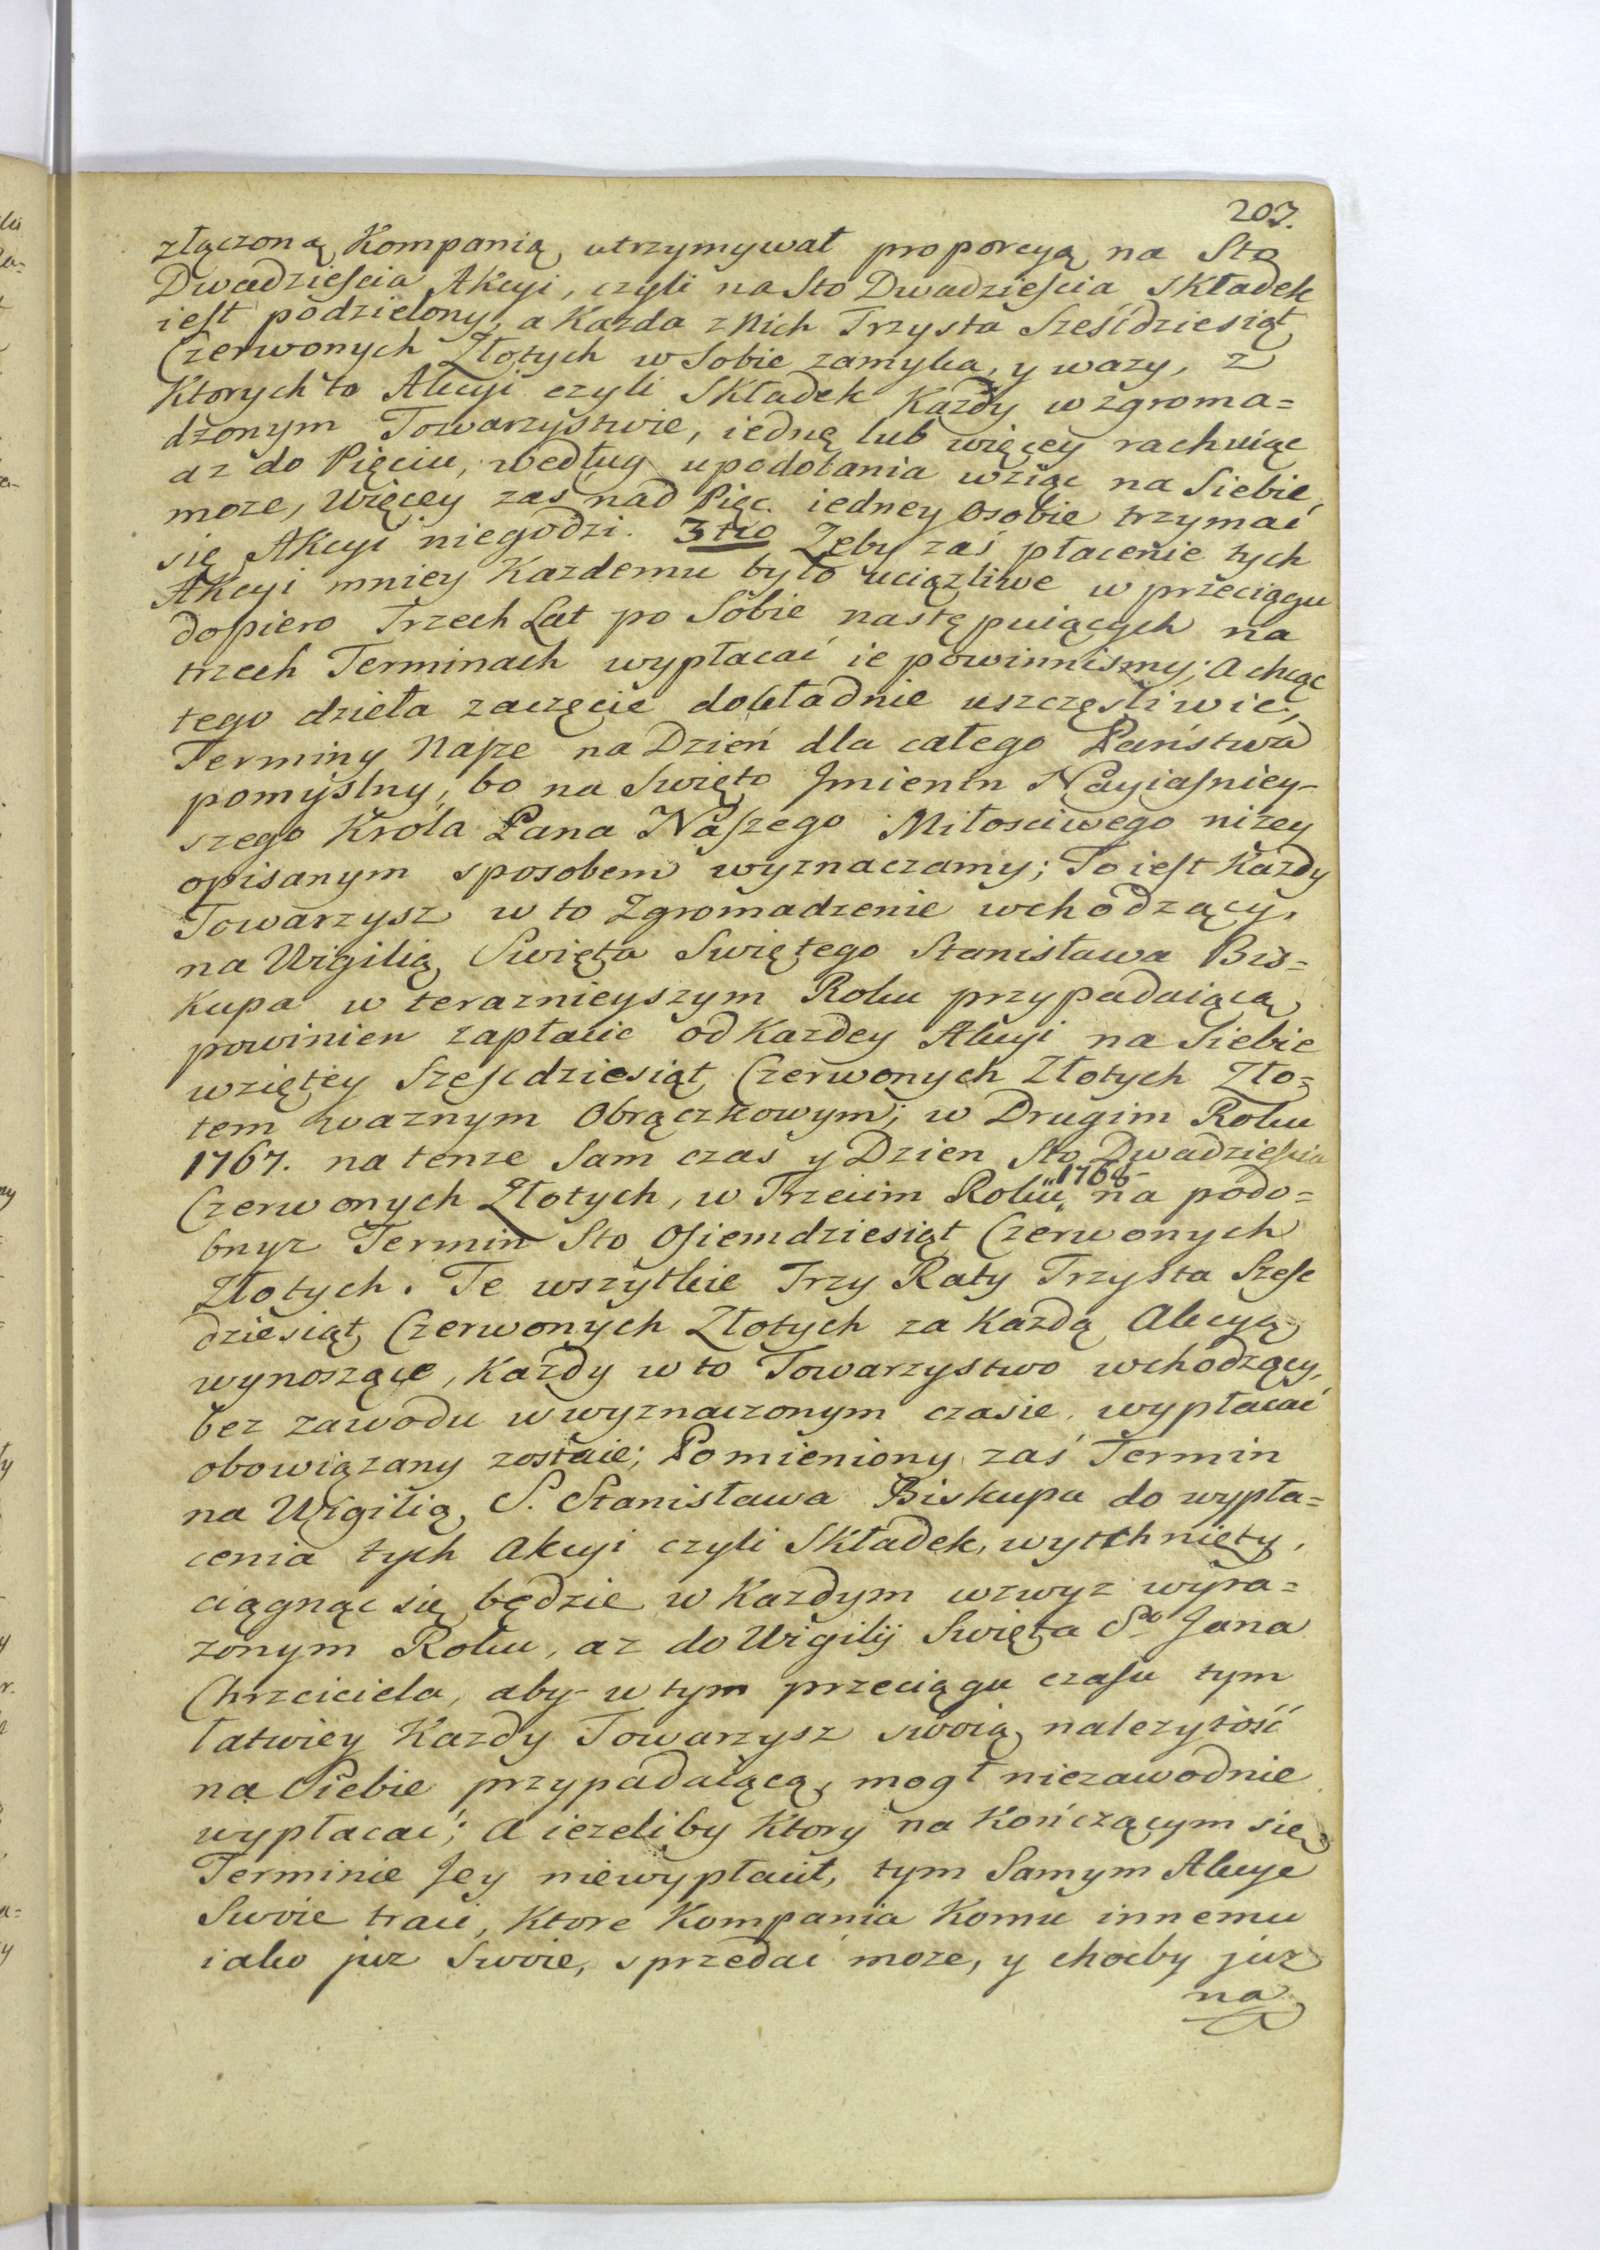 207.
złączoną Kompanią utrzymywał proporcyą na Sto
Dwadzieścia Akcyi, czyli na Sto Dwadzieścia Składek
iest podzielony, a Kazda z Nich Trzysta Sześćdziesiąt
Czerwonych Złotych w Sobie zamyka, y wazy, z
Ktorych to Akcyi czyli Składek Kazdy w zgroma=
dzonym Towarzystwie, iednę lub więcey rachuiąc
az do Pięciu, według upodobania wziąc na Siebie
moze, Więcey zas nad Pięc iedney Osobie trzymać
się Akcyi niegodzi. 3tio Zeby zaś płacenie tych
Akcyi mniey Kazdemu było uciązliwe w przeciągu
dopiero Trzech Lat po Sobie następuiących na
trzech Terminach wypłacać ie powinnismy; a chcąc
tego dzieła zaczęcie dokładnie uszczęśliwić,
Terminy Nasze na Dzień dla całego Państwa
pomyslny, bo na Swięto Jmienin Nayiaśniey-
szego Krola Pana Naszego Miłosciwego nizey
opisanym sposobem wyznaczamy; To iest Kazdy
Towarzysz w to Zgromadzenie wchodzący,
na Wigilią Swięta Swiętego Stanisława Bis=
kupa w teraznieyszym Roku przypadaiącą
powinien zapłacic od Kazdey Akcyi na Siebie
wziętey Szescdziesiąt Czerwonych Złotych Zło=
tem waznym Obrączkowym; w Drugim Roku
1767. na tenze Sam czas y Dzien Sto Dwadziescia
Czerwonych Złotych, w Trzecim Roku 1768 na podo=
bnyz Termin Sto Osiemdziesiąt Czerwonych
Złotych. Te wszytkie Trzy Raty Trzysta Szesc
dziesiąt Czerwonych Złotych za Kazdą Akcyą
wynoszące, Kazdy w to Towarzystwo wchodzący,
bez zawodu w wyznaczonym czasie wypłacać
obowiązany zostaie; Pomieniony zaś Termin
na Wigilią S. Stanisława Biskupa do wypła=
cenia tych Akcyi czyli Składek, wytchnięty,
ciągnąc się będzie w Kazdym wzwyz wyra=
zonym Roku, az do Wigilij Swięta Sgo Jana
Chrzciciela, aby w tym przeciągu czasu tym
łatwiey Kazdy Towarzysz swoią nalezytość
na Siebie przypadaiącą, mogł niezawodnie
wypłacać; a iezeliby Ktory na Kończącym się
Terminie Jey niewypłacił, tym Samym Akcye
Swoie traci, Ktore Kompania Komu innemu
iako juz Swoie, sprzedać moze, y chocby juz
na